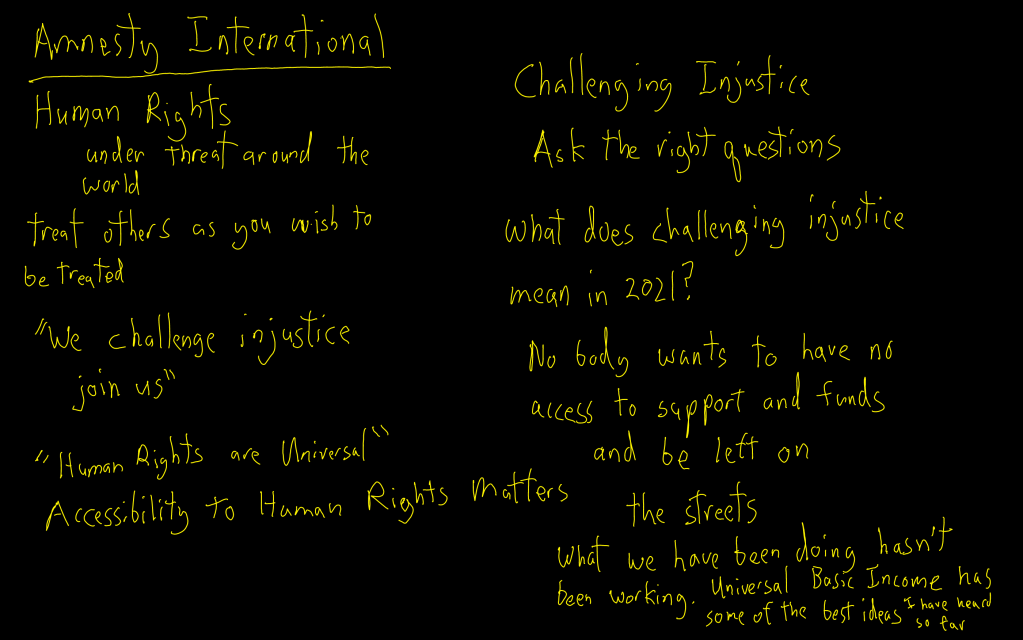 Amnesty International
Human Rights
under threat around the
world
treat others as you wish to
be treated
"We challenge injustice
join us"
"Human Rights are Universal"
Accessibility to Human Rights Matters
Challenging Injustice
Ask the right questions
What does challenging injustice
mean in 2021?
No body wants to have no
access to support and funds
and be left on
the streets
What we have been doing hasn't
been working. Universal Basic Income has
some of the best ideas I have heard
so far